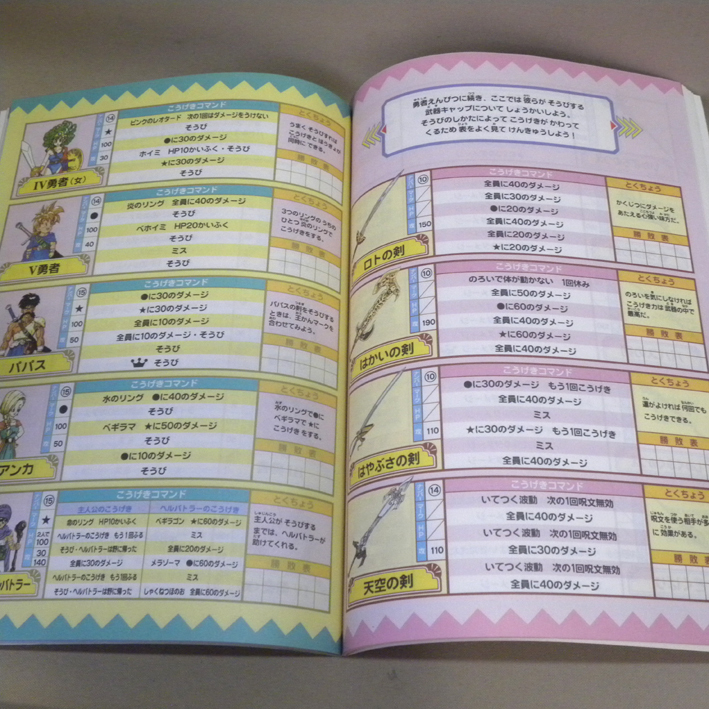 こうげきコマンド
⑭
★
100
30
ピンクのレオタード 次の1回はダメージをうけない
そうび
●に30のダメージ
ホイミ HP10かいふく・そうび
★に30のダメージ
そうび
とくちょう
うまく そうびすれば
こうげきと ぼうぎょが
同時に できる。
勝敗表
Ⅳ勇者(女)
こうげきコマンド
⑭
●
100
40
炎のリング 全員に40のダメージ
そうび
ベホイミ HP20かいふく
そうび
ミス
そうび
とくちょう
3つのリングの うちの
ひとつ 炎のリングで
こうげきをする。
勝敗表
Ⅴ勇者
こうげきコマンド
⑮
★
100
50
●に30のダメージ
★に30のダメージ
全員に10のダメージ
全員に10のダメージ・そうび
そうび
そうび
とくちょう
パパスの剣をそうびする
ときは、王かんマークを
合わせてみよう。
勝敗表
パパス
こうげきコマンド
⑮
●
100
50
水のリング ●に40のダメージ
そうび
ベギラマ ★に50のダメージ
そうび
●に10のダメージ
そうび
とくちょう
水のリングで●に
ベギラマで ★に
こうげき をする。
勝敗表
アンカ
こうげきコマンド
⑮
★
2人で
100
30
140
主人公のこうげき ヘルバトラーのこうげき
命のリング HP10かいふく ベギラゴン ★に60のダメージ
ヘルバトラーのこうげき もう1回ふる ミス
そうび・ヘルバトラーは野に帰った 全員に20のダメージ
全員に30のダメージ メラゾーマ ●に60のダメージ
ヘルバトラーのこうげき もう1回ふる ミス
そうび・ヘルバトラーは野に帰った しゃくねつほのお 全員に60のダメージ
とくちょう
主人公が そうびする
までは、ヘルバトラーが
助けてくれる。
勝敗表
バトラー
勇者えんぴつに続き、ここでは 彼らが そうびする
武器キャップについて しょうかいしよう。
そうびのしかたによって こうげきが かわって
くるため 表をよく見て けんきゅうしよう!
こうげきコマンド
⑩
150
全員に40のダメージ
全員に30のダメージ
●に20のダメージ
全員に40のダメージ
全員に20のダメージ
★に20のダメージ
とくちょう
かくじつにダメージを
あたえる心強い味方だ。
勝敗表
ロトの剣
こうげきコマンド
⑩
190
のろいで体が動かない 1回休み
全員に50のダメージ
●に60のダメージ
全員に40のダメージ
★に60のダメージ
全員に40のダメージ
とくちょう
のろいを気にしなければ
こうげき力は 武器の中で
最高だ。
勝敗表
はかいの剣
こうげきコマンド
⑩
110
●に30のダメージ もう1回こうげき
全員に40のダメージ
ミス
★に30のダメージ もう1回こうげき
ミス
全員に40のダメージ
とくちょう
運がよければ 何回でも
こうげきできる。
勝敗表
はやぶさの剣
こうげきコマンド
⑭
110
いてつく波動 次の1回呪文無効
全員に40のダメージ
いてつく波動 次の1回呪文無効
全員に30のダメージ
いてつく波動 次の1回呪文無効
全員に40のダメージ
とくちょう
呪文を使う相手が多い
に 効果がある。
勝敗表
天空の剣